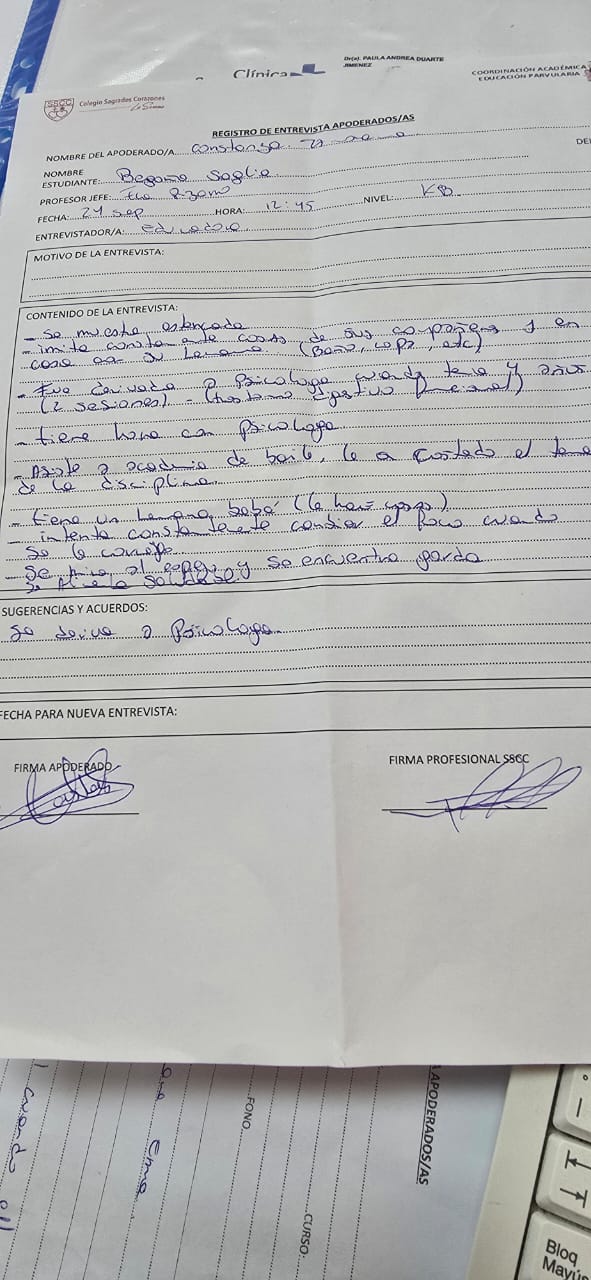 Clínica
Dr(a). PAULA ANDREA DUARTE
JIMENEZ
COORDINACIÓN ACADÉMICA
EDUCACIÓN PARVULARIA
SSCC
Colegio Sagrados Corazones
REGISTRO DE ENTREVISTA APODERADOS/AS
NOMBRE DEL APODERADO/A Constanza
NOMBRE
ESTUDIANTE: Saglie
PROFESOR JEFE:
FECHA: 24 sep HORA: 12:45 NIVEL: KB
ENTREVISTADOR/A: educadora
MOTIVO DE LA ENTREVISTA:
CONTENIDO DE LA ENTREVISTA:
- Se muestra estancada
- imita constantemente cosas de sus compañeros y en
casa a su hermano
- Fue derivada a Psicologa cuando tenia 4 años
(2 sesiones) -
- tiene hora con psicologa
- Asiste a academia de baile, le a costado el tema
de la disciplina
- tiene un hermano bebé
- intenta constantemente cambiar el foco cuando
se le corrige
- Se mira al espejo y se encuentra gorda
SUGERENCIAS Y ACUERDOS:
Se deriva a Psicologa
FECHA PARA NUEVA ENTREVISTA:
FIRMA APODERADO
FIRMA PROFESIONAL SSCC
APODERADOS/AS
FONO
CURSO:
cuando
Bloq
Mayús